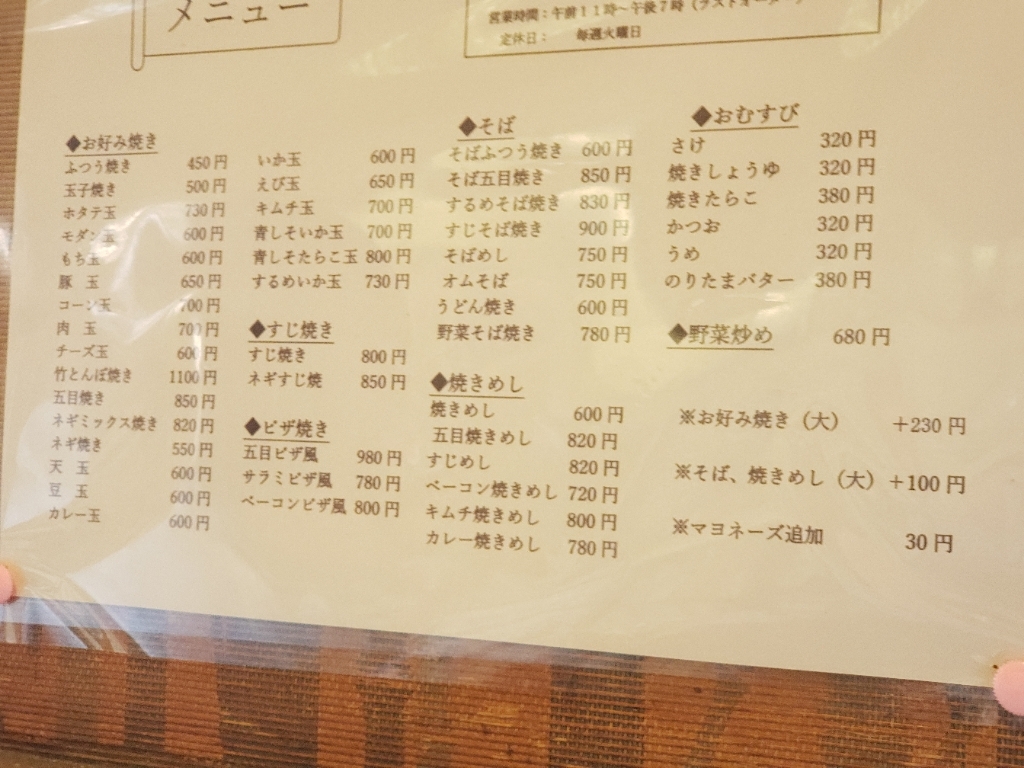 メニュー
営業時間：午前11時～午後7時（ラストオーダー
定休日： 毎週火曜日
◆お好み焼き
ふつう焼き 450円
玉子焼き 500円
ホタテ玉 730円
モダン玉 600円
もち玉 600円
豚 玉 650円
コーン玉 700円
肉 玉 700円
チーズ玉 600円
竹とんぼ焼き 1100円
五目焼き 850円
ネギミックス焼き 820円
ネギ焼き 550円
天 玉 600円
豆 玉 600円
カレー玉 600円
いか玉 600円
えび玉 650円
キムチ玉 700円
青しそいか玉 700円
青しそたらこ玉 800円
するめいか玉 730円
◆すじ焼き
すじ焼き 800円
ネギすじ焼 850円
◆ピザ焼き
五目ピザ風 980円
サラミピザ風 780円
ベーコンピザ風 800円
◆そば
そばふつう焼き 600円
そば五目焼き 850円
するめそば焼き 830円
すじそば焼き 900円
そばめし 750円
オムそば 750円
うどん焼き 600円
野菜そば焼き 780円
◆焼きめし
焼きめし 600円
五目焼きめし 820円
すじめし 820円
ベーコン焼きめし 720円
キムチ焼きめし 800円
カレー焼きめし 780円
◆おむすび
さけ 320円
焼きしょうゆ 320円
焼きたらこ 380円
かつお 320円
うめ 320円
のりたまバター 380円
◆野菜炒め 680円
※お好み焼き（大） ＋230円
※そば、焼きめし（大） ＋100円
※マヨネーズ追加 30円